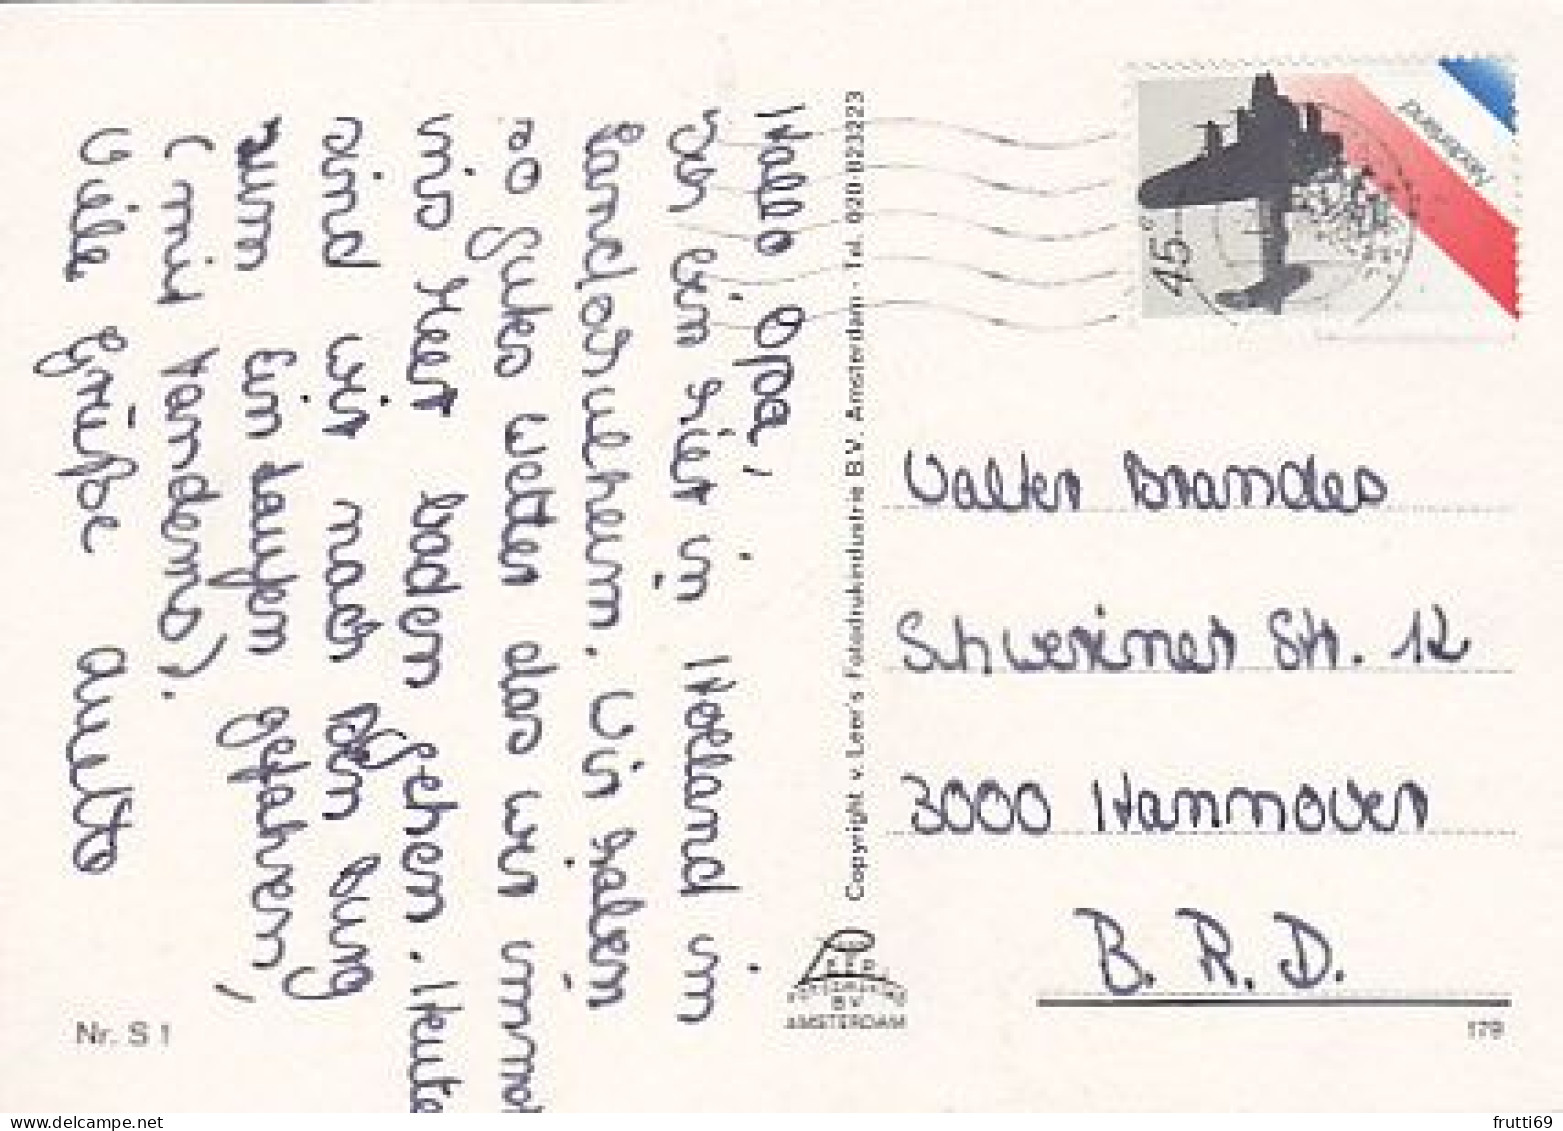 Hallo Opa,
Ich bin hier in Holland im
Landesulheim. Wir haben
so gutes wetter das wir immer
ins Meer baden gehen. Heute
sind wir nach Den burg
zum Einkaufen gefahren,
(mit Tandems).
Viele Grüße Anette
Nr. S 1
Copyright v. Leer's Fotodrukindustrie B.V. Amsterdam - Tel. 020-823223
B.V.
AMSTERDAM
Nederland
45 c
Walter Brandes
Schweriner Str. 12
3000 Hannover
B. R. D.
179
frutti69